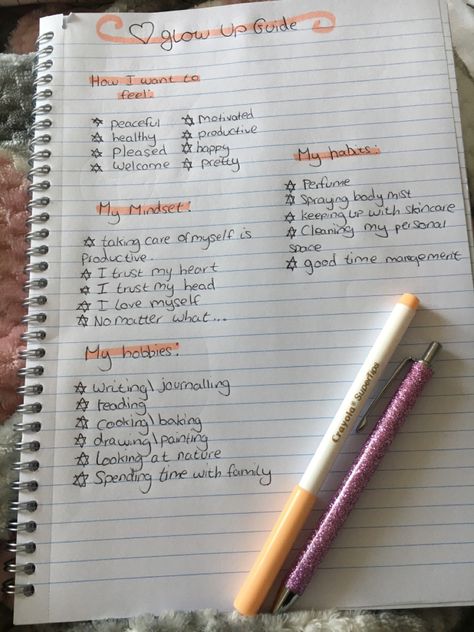 ♡ glow up Guide
How I want to
feel:
peaceful
healthy
Pleased
Welcome
motivated
productive
happy
pretty
My Mindset:
taking care of myself is
Productive.
I trust my heart
I trust my head
I love myself
No matter what...
My hobbies:
Writing\journalling
reading
cooking\baking
drawing\painting
Looking at nature
Spending time with family
My habits:
Perfume
Spraying body mist
keeping up with skincare
Cleaning my personal
space
good time management
Crayola Supertips